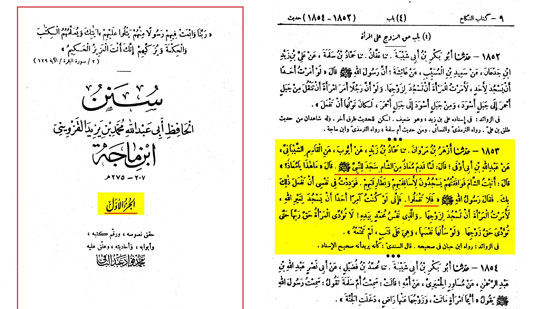 « رَبَّنَا وَابْعَثْ فِيهِمْ رَسُولًا مِنْهُمْ يَتْلُوا عَلَيْهِمْ ءَايَٰتِكَ وَيُعَلِّمُهُمُ الْكِتَٰبَ
وَالْحِكْمَةَ وَيُزَكِّيهِمْ إِنَّكَ أَنْتَ الْعَزِيزُ الْحَكِيمُ »
( ٢ / سورة البقرة / الآية ١٢٩ )
سُنَنُ
الحَافِظِ أَبِي عَبْدِ اللهِ مُحَمَّدِ بْنِ يَزِيدَ القَزْوِينِي
ابْنُ مَاجَه
٢٠٧ - ٢٧٥ هـ
الجُزْءُ الأوَّلُ
حقق نصوصه ، ورقم كتبه ،
وأبوابه ، وأحاديثه ، وعلق عليه
محمد فؤاد عبد الباقي
٩ - كتاب النكاح (٤) باب (١٨٥٣ - ١٨٥٤) حديث
(٤) باب حق الزوج على المرأة
١٨٥٢ - حَدَّثَنَا أَبُو بَكْرِ بْنُ أَبِي شَيْبَةَ . ثنا عَفَّانُ . ثنا حَمَّادُ بْنُ سَلَمَةَ ، عَنْ عَلِيِّ بْنِ زَيْدِ
ابْنِ جُدْعَانَ ، عَنْ سَعِيدِ بْنِ الْمُسَيِّبِ ، عَنْ عَائِشَةَ ؛ أَنَّ رَسُولَ اللهِ ﷺ قَالَ « لَوْ أَمَرْتُ أَحَدًا
أَنْ يَسْجُدَ لِأَحَدٍ ، لَأَمَرْتُ الْمَرْأَةَ أَنْ تَسْجُدَ لِزَوْجِهَا . وَلَوْ أَنَّ رَجُلًا أَمَرَ امْرَأَةً أَنْ تَنْقُلَ مِنْ جَبَلٍ
أَحْمَرَ إِلَى جَبَلٍ أَسْوَدَ ، وَمِنْ جَبَلٍ أَسْوَدَ إِلَى جَبَلٍ أَحْمَرَ ، لَكَانَ نَوْلُهَا أَنْ تَفْعَلَ » .
في الزوائد : في إسناده علي بن زيد ، وهو ضعيف . لكن للحديث طرق أخر . وله شاهدان من حديث
طلق بن علي . رواه الترمذي والنسائي . ومن حديث أم سلمة ، رواه الترمذي وابن ماجة .
١٨٥٣ - حَدَّثَنَا أَزْهَرُ بْنُ مَرْوَانَ . ثنا حَمَّادُ بْنُ زَيْدٍ ، عَنْ أَيُّوبَ ، عَنِ الْقَاسِمِ الشَّيْبَانِيِّ ،
عَنْ عَبْدِ اللهِ بْنِ أَبِي أَوْفَى ؛ قَالَ : لَمَّا قَدِمَ مُعَاذٌ مِنَ الشَّامِ سَجَدَ لِلنَّبِيِّ ﷺ . قَالَ « مَا هٰذَا يَا مُعَاذُ ؟ »
قَالَ : أَتَيْتُ الشَّامَ فَوَافَقْتُهُمْ يَسْجُدُونَ لِأَسَاقِفَتِهِمْ وَبَطَارِقَتِهِمْ . فَوَدِدْتُ فِي نَفْسِي أَنْ نَفْعَلَ ذٰلِكَ
بِكَ . فَقَالَ رَسُولُ اللهِ ﷺ « فَلَا تَفْعَلُوا . فَإِنِّي لَوْ كُنْتُ آمِرًا أَحَدًا أَنْ يَسْجُدَ لِغَيْرِ اللهِ ،
لَأَمَرْتُ الْمَرْأَةَ أَنْ تَسْجُدَ لِزَوْجِهَا . وَالَّذِي نَفْسُ مُحَمَّدٍ بِيَدِهِ ! لَا تُؤَدِّي الْمَرْأَةُ حَقَّ رَبِّهَا حَتَّى
تُؤَدِّيَ حَقَّ زَوْجِهَا . وَلَوْ سَأَلَهَا نَفْسَهَا ، وَهِيَ عَلَى قَتَبٍ ، لَمْ تَمْنَعْهُ » .
في الزوائد : رواه ابن حبان في صحيحه . قال السندي : كأنه يريد أنه صحيح الإسناد .
١٨٥٤ - حَدَّثَنَا أَبُو بَكْرِ بْنُ أَبِي شَيْبَةَ . ثنا مُحَمَّدُ بْنُ فُضَيْلٍ ، عَنْ أَبِي نَصْرٍ عَبْدِ اللهِ بْنِ
عَبْدِ الرَّحْمٰنِ ، عَنْ مُسَاوِرٍ الْحِمْيَرِيِّ ، عَنْ أُمِّهِ ؛ قَالَتْ : سَمِعْتُ أُمَّ سَلَمَةَ تَقُولُ : سَمِعْتُ رَسُولَ اللهِ ﷺ
يَقُولُ « أَيُّمَا امْرَأَةٍ مَاتَتْ ، وَزَوْجُهَا عَنْهَا رَاضٍ ، دَخَلَتِ الْجَنَّةَ » .